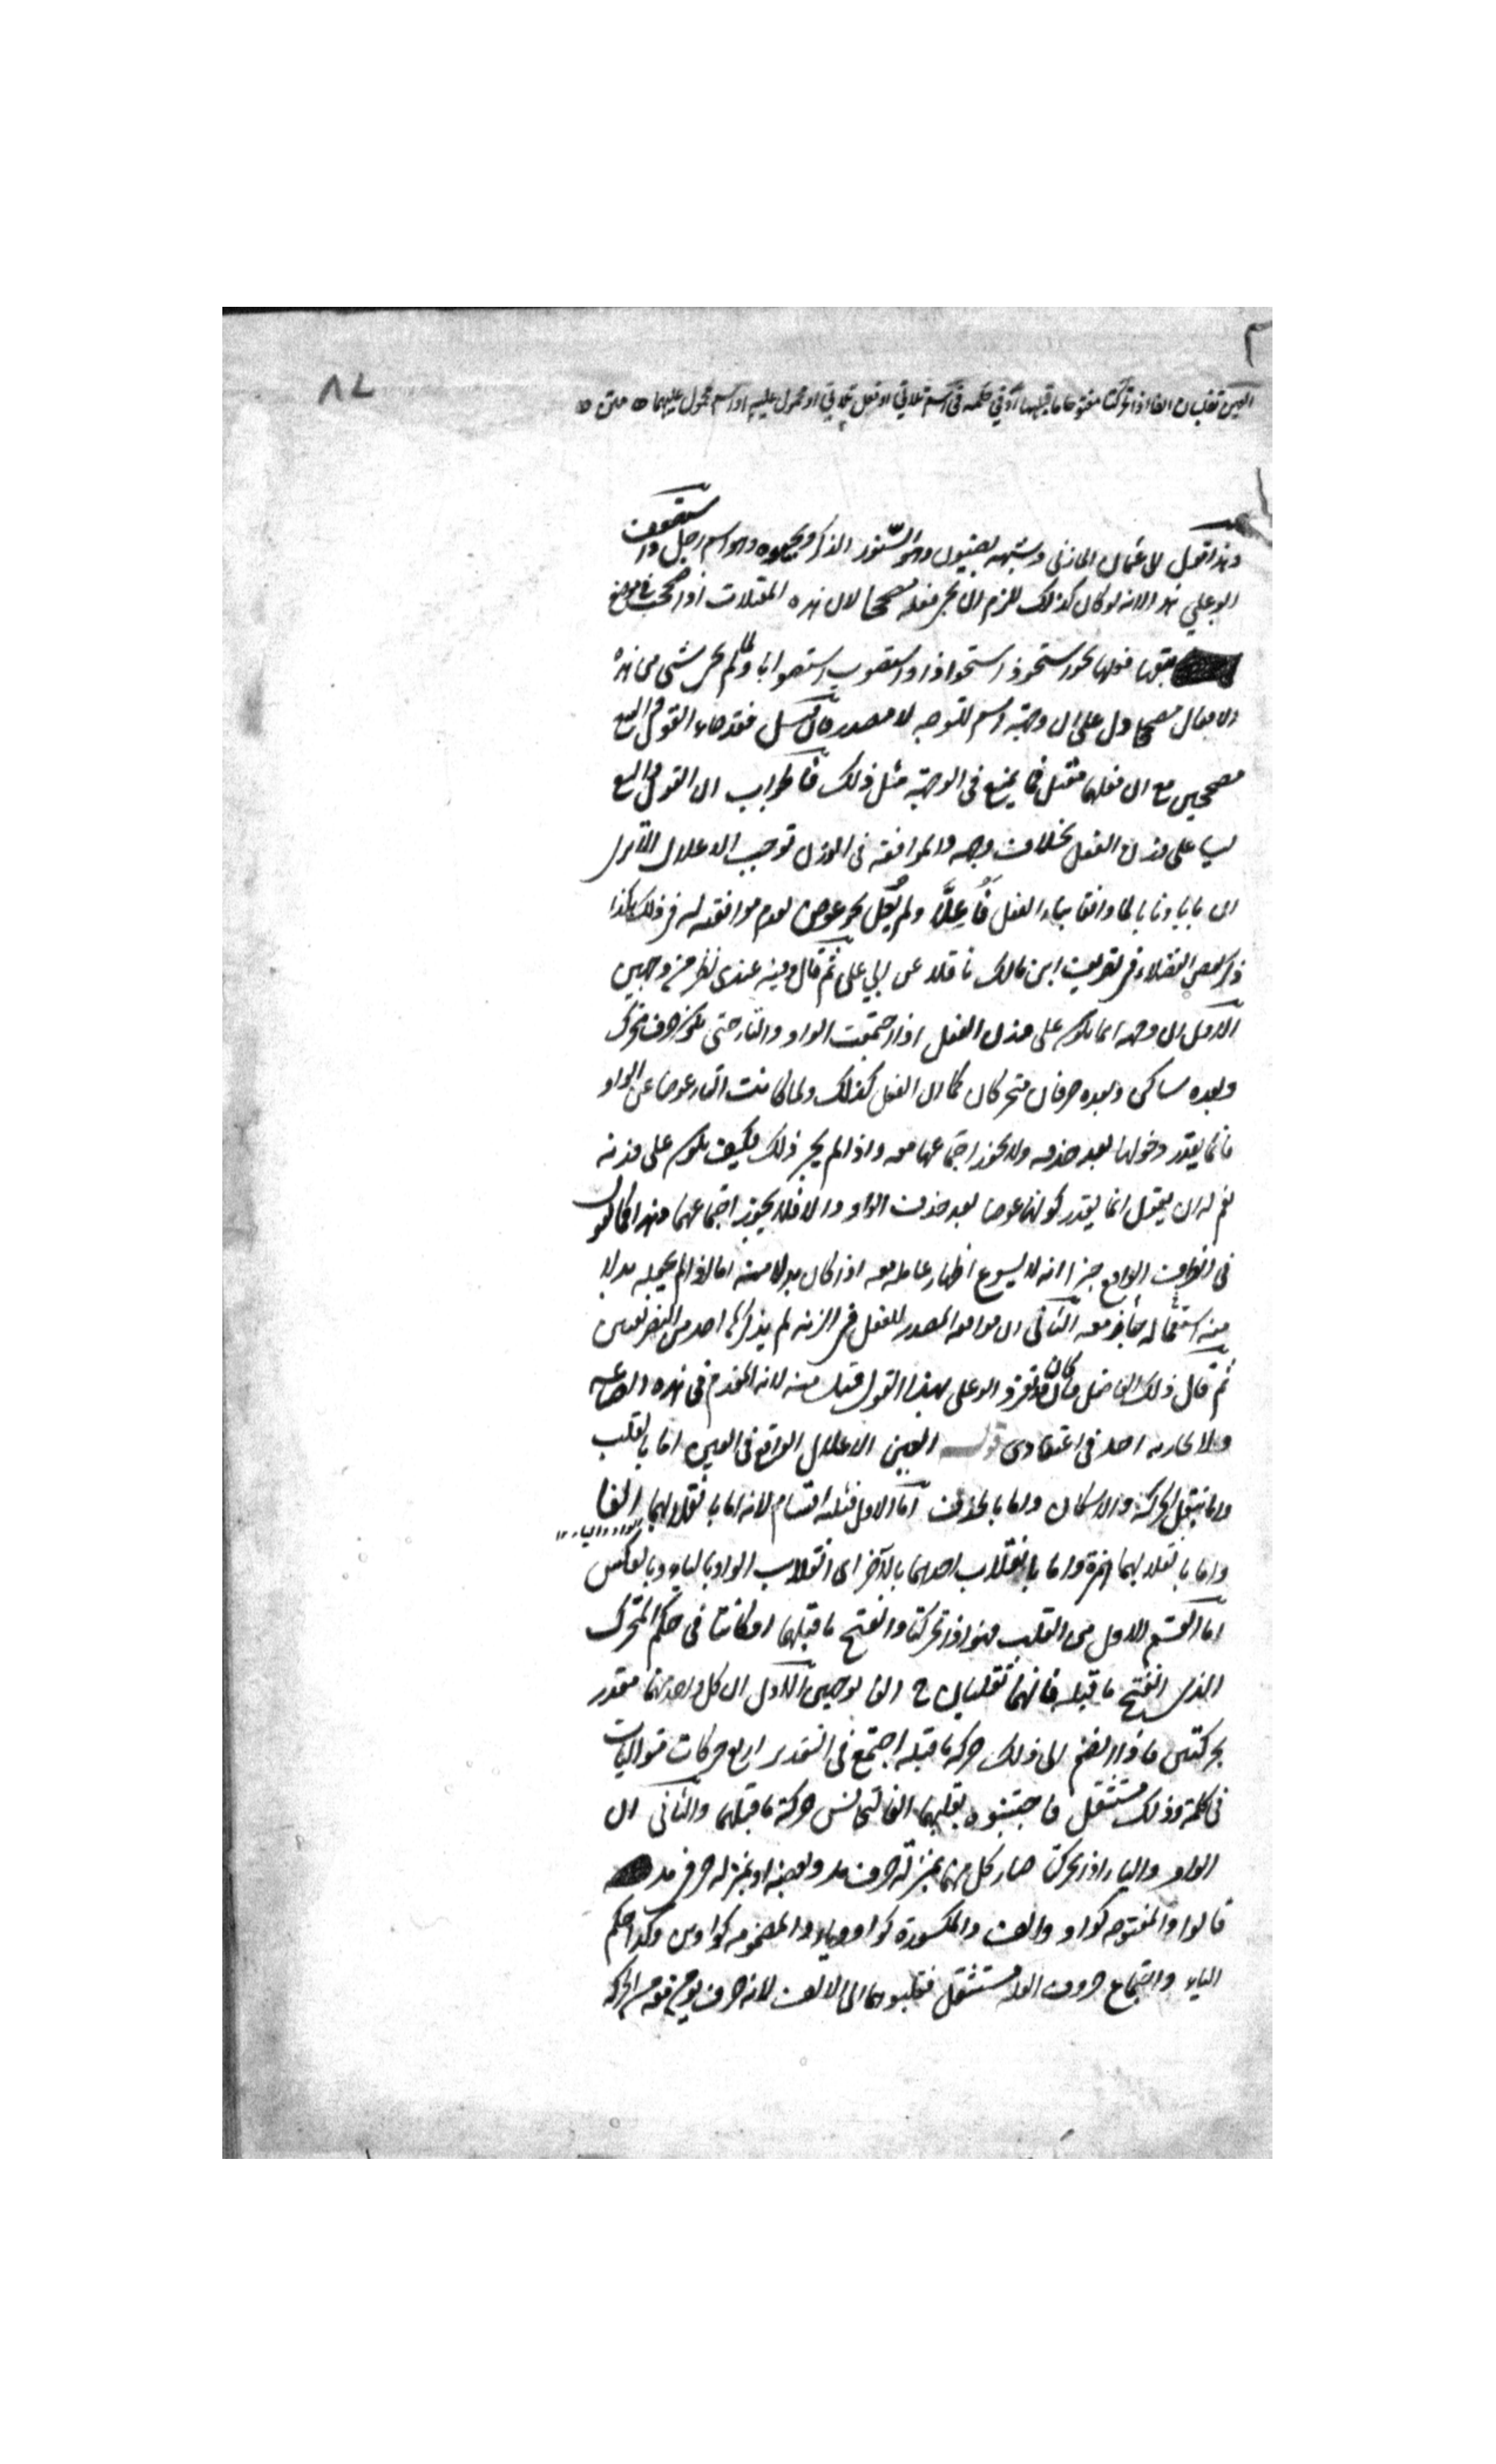 ٨٧
العين تقلبان الفا اذا تحركتا مفتوحا ما قبلهما او في حكمه في اسم ثلاثي او فعل ثلاثي او محمول عليه او اسم محمول عليهما متن
وهذا قول ابي عثمان المازني وشبهه بضيون وهو السنور الذكر وبحيوه وهو اسم رجل واستضعف
ابو علي هذا لانه لو كان كذلك للزم ان يجئ فعله مصححا لان هذه المعتلات اذا صحت في موضع
فعلها نحو استحوذ استحواذا واستصوب استصوابا ولما لم يجئ شئ من هذه
الافعال مصححا دل على ان وجهة اسم للتوجه لا مصدر فان قيل فقد جاء القول والبيع
مصححين مع ان فعلهما معتل فما يمنع في الوجهة مثل ذلك فالجواب ان القول والبيع
ليسا على وزن الفعل بخلاف وجهة والموافقة في الوزن توجب الاعلال الا ترى
ان بابا ونابا لما وافقا بناء الفعل اُعِلّا ولم يُعَل نحو عوض لعدم موافقته له في ذلك هكذا
ذكر بعض الفضلاء في تصريف ابن مالك ناقلا عن ابي علي ثم قال وفيه عندي نظر من وجهين
الاول ان وجهة انما يكون على وزن الفعل اذا اجتمعت الواو والتاء حتى يكون حرف متحرك
وبعده ساكن وبعده حرفان متحركان كما ان الفعل كذلك ولما كانت التاء عوضا عن الواو
فانما يقدر دخولها بعد حذفه ولا يجوز اجتماعها معه واذا لم يجز ذلك فكيف يكون على وزنه
نعم له ان يقول انما يقدر كونها عوضا بعد حذف الواو والا فلا يجوز اجتماعهما وهذا كما يقول
في الظرف الواقع خبرا انه لا يسوغ اظهار عامله معه اذا كان بدلا منه اما اذا لم يجعله بدلا
منه استعماله جائز معه الثاني ان موافقة المصدر للفعل في الزنة لم يذكرها احد من التصريفيين
ثم قال ذلك الفاضل فان كان قد تفرد ابو علي بهذا القول قبل منه لانه المقدم في هذه الصناعة
ولا يجاريه احد في اعتقادي قوله العين الاعلال الواقع في العين اما بالقلب
واما بنقل الحركة والاسكان واما بالحذف اما الاول فثلثة اقسام لانه اما بانقلابهما الفا
الواو والياء
واما بانقلابهما همزة واما بانقلاب احدهما بالآخر اي انقلاب الواو بالياء وبالعكس
اما القسم الاول من القلب فهو اذا تحركتا وانفتح ما قبلهما او كانتا في حكم المتحرك
الذي انفتح ما قبله فانهما تقلبان ح الفا لوجهين الاول ان كل واحد منهما مقدر
بحركتين فاذا انضم الى ذلك حركة ما قبله اجتمع في التقدير اربع حركات متواليات
في كلمة وذلك مستثقل فاجتنبوه بقلبهما الفا لتجانس حركة ما قبلهما والثاني ان
الواو والياء اذا تحركتا صار كل منهما بمنزلة حرف مد وبعضه او بمنزلة حرفي مد
قالوا والمفتوحة كواو والف والمكسورة كواو وياء والمضمومة كواوين وكذا حكم
الياء واجتماع حروف العلة مستثقل فقلبوهما الى الالف لانه حرف يؤمن معه من الحركة